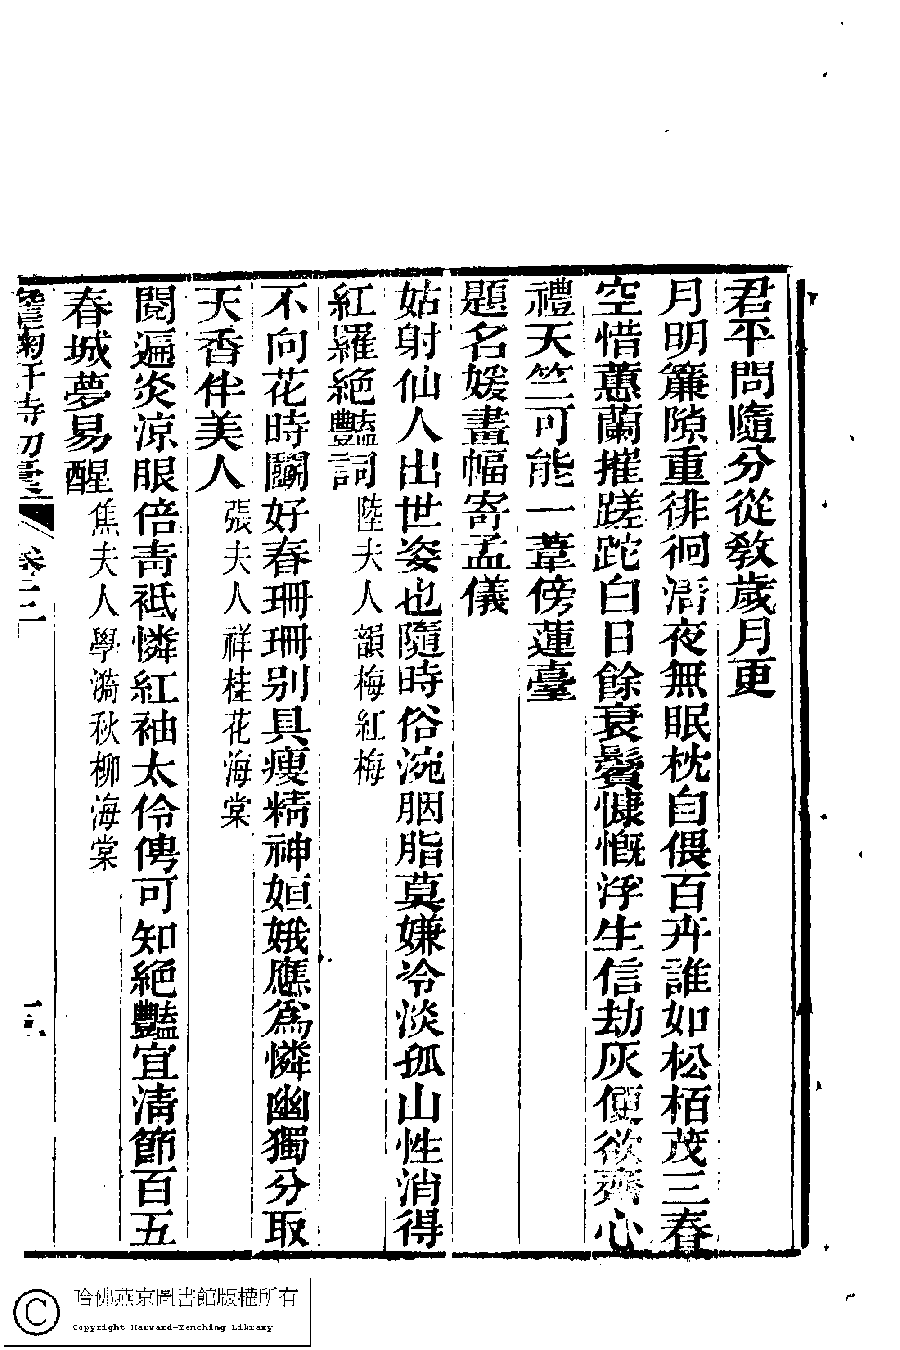 君平問隨分從教歲月更
月明簾隙重徘徊清夜無眠枕自偎百卉誰如松栢茂三春
空惜蕙蘭摧蹉跎白日餘衰鬢慷慨浮生信劫灰便欲齊心
禮天竺可能一葦傍蓮臺
題名媛畫幅寄孟儀
姑射仙人出世姿也隨時俗涴胭脂莫嫌冷淡孤山性消得
紅羅絶豔詞 陸夫人韻梅紅梅
不向花時鬬好春珊珊别具瘦精神姮娥應爲憐幽獨分取
天香伴美人 張夫人祥桂花海棠
閱遍炎涼眼倍靑袛憐紅袖太伶俜可知絶豔宜清節百五
春城夢易醒 焦夫人學漪秋柳海棠
卷三
哈佛燕京圖書館版權所有
Copyright Harvard-Yenching Library